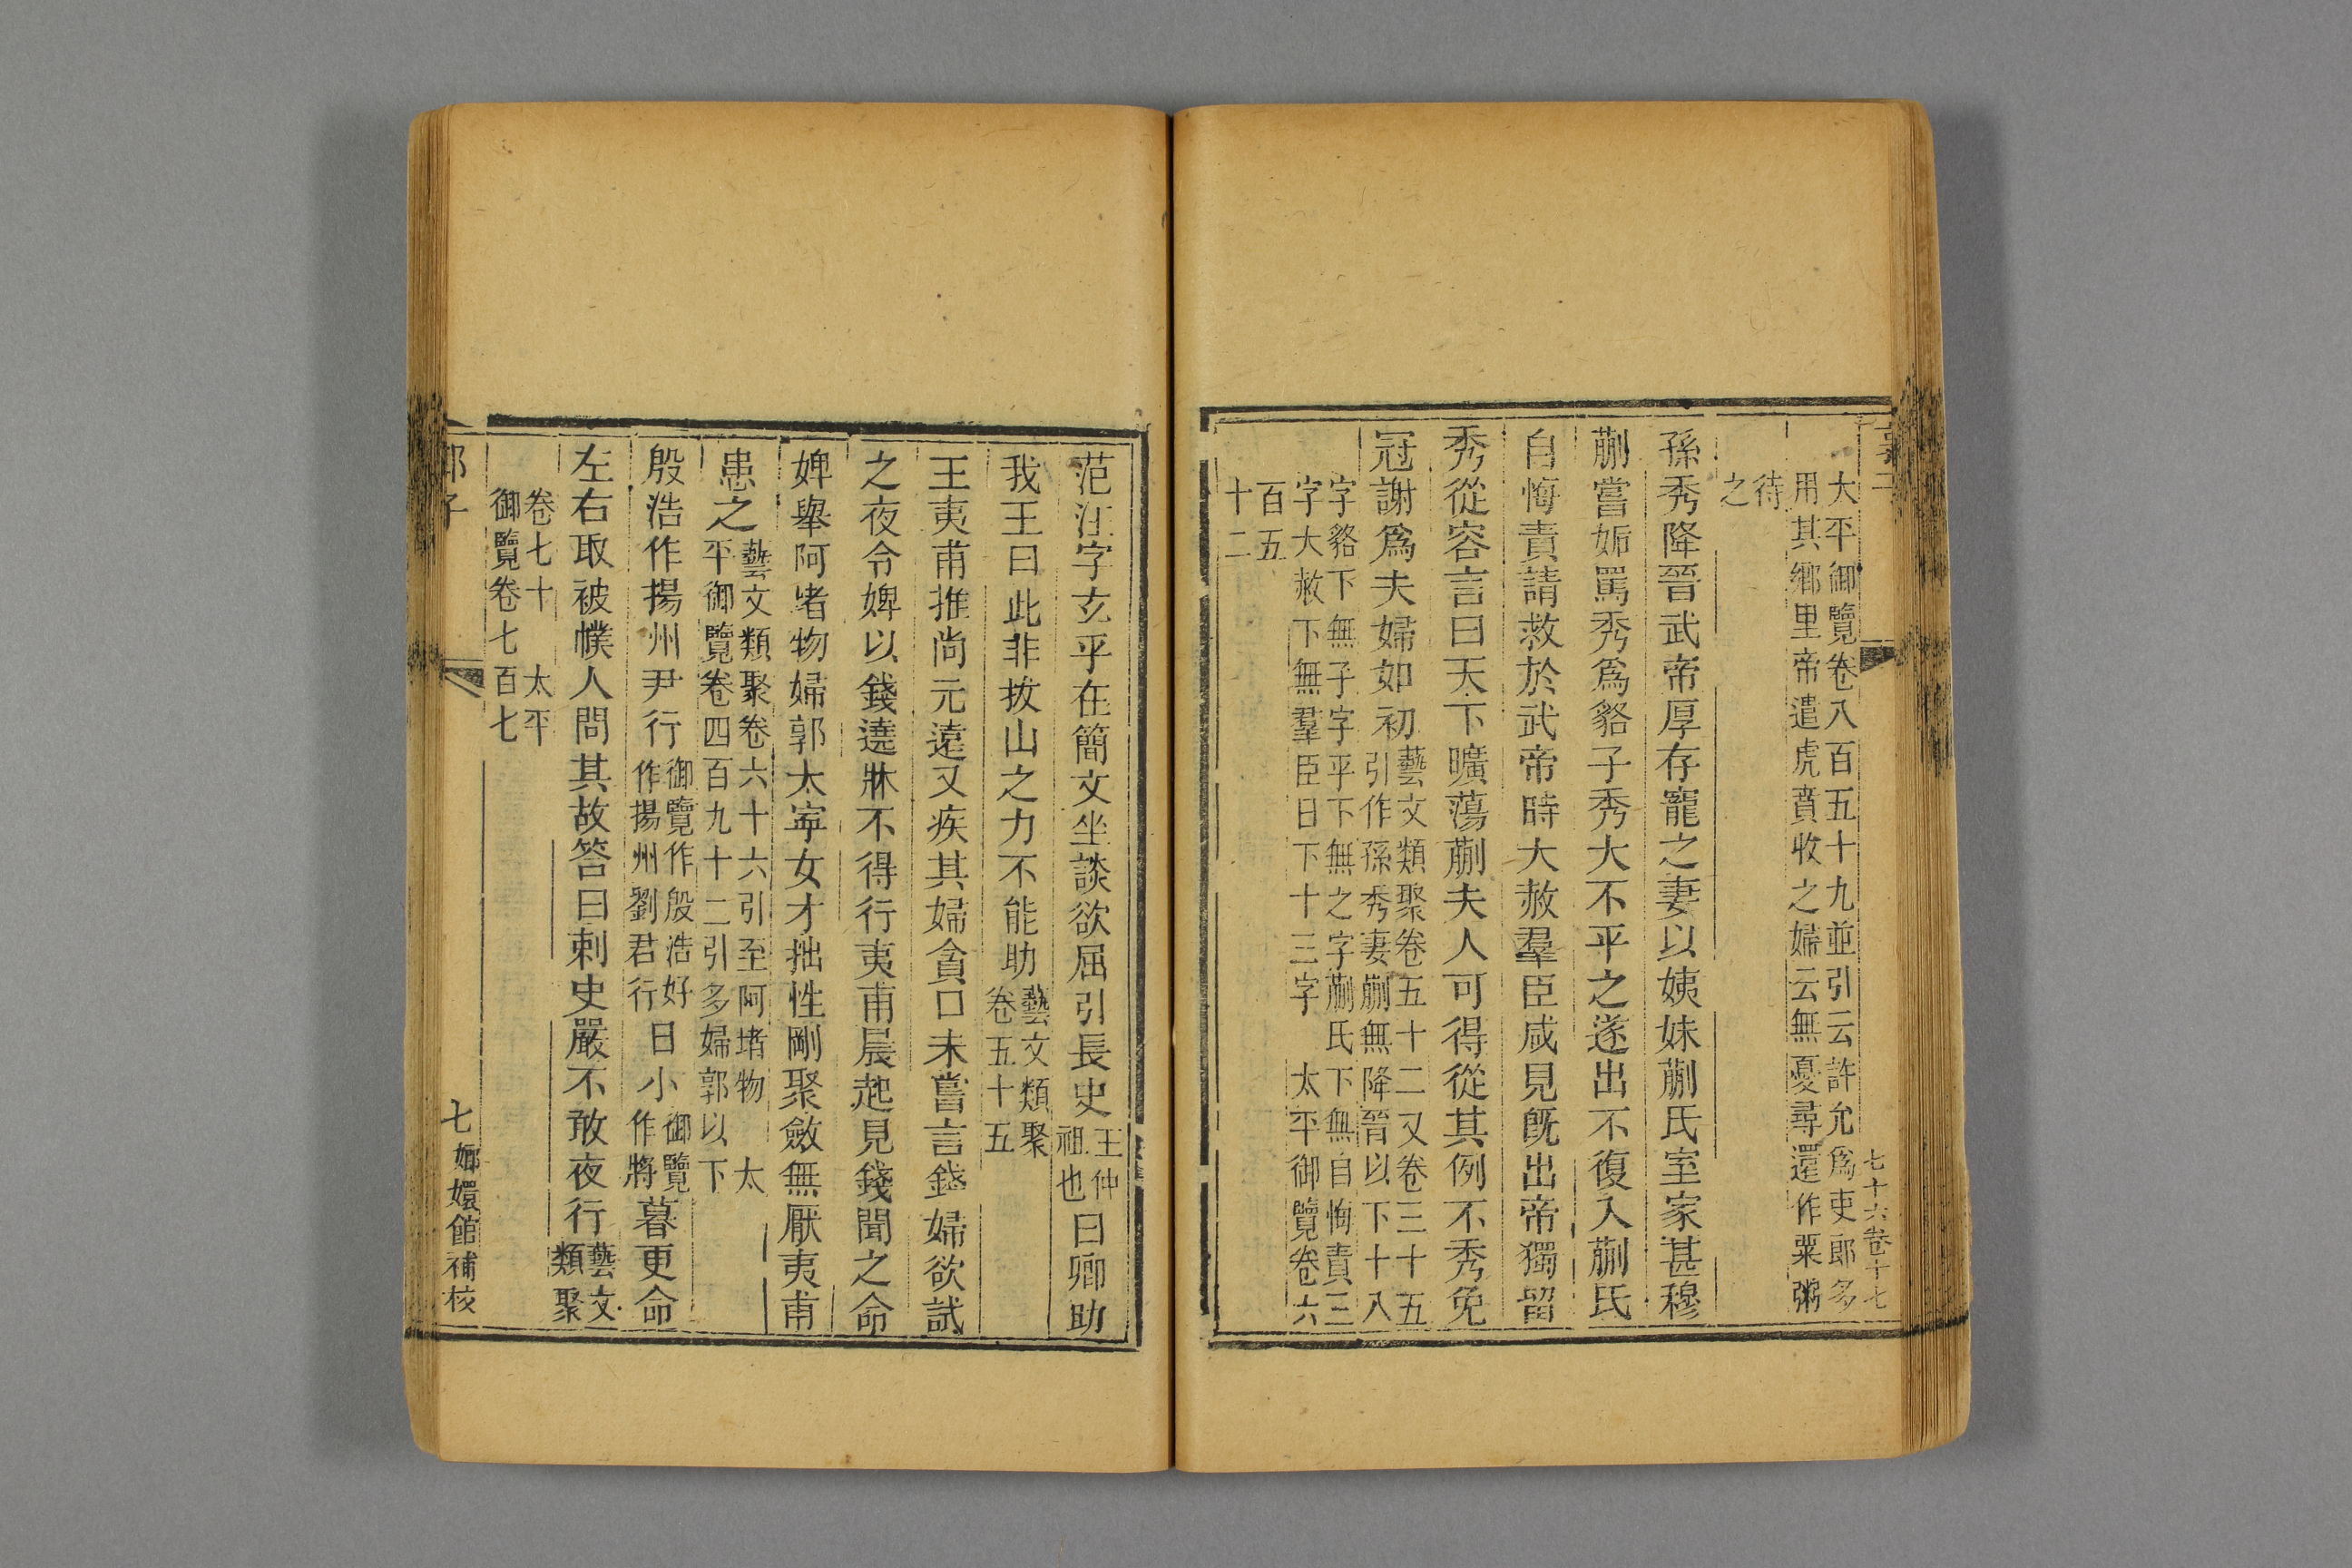 七十六卷十七
大平御覽卷八百五十九並引云許允爲吏郎多
用其鄉里帝遣虎賁收之婦云無憂尋還作粟粥
待
之
孫秀降晉武帝厚存寵之妻以姨妹蒯氏室家甚穆
蒯嘗妬罵秀爲貉子秀大不平之遂出不復入蒯氏
自悔責請救於武帝時大赦羣臣咸見旣出帝獨留
秀從容言曰天下曠蕩蒯夫人可得從其例不秀免
冠謝爲夫婦如初
藝文類聚卷五十二又卷三十五
引作孫秀妻蒯無降晉以下十八
字貉下無子字平下無之字蒯氏下無自悔責三
字大赦下無羣臣日下十三字 太平御覽卷六
百五
十二
范汪字玄平在簡文坐談欲屈引長史
王仲
祖也
曰卿助
我王曰此非拔山之力不能助
藝文類聚
卷五十五
王夷甫推尚元遠又疾其婦貪口未嘗言錢婦欲試
之夜令婢以錢遶牀不得行夷甫晨起見錢聞之命
婢舉阿堵物婦郭太寧女才拙性剛聚斂無厭夷甫
患之
藝文類聚卷六十六引至阿堵物 太
平御覽卷四百九十二引多婦郭以下
殷浩作揚州尹行
御覽作殷浩好
作揚州劉君行
日小
御覽
作將
暮更命
左右取被幞人問其故答曰刺史嚴不敢夜行
藝文
類聚
卷七十 太平
御覽卷七百七
郭子
七
嫏嬛館補校